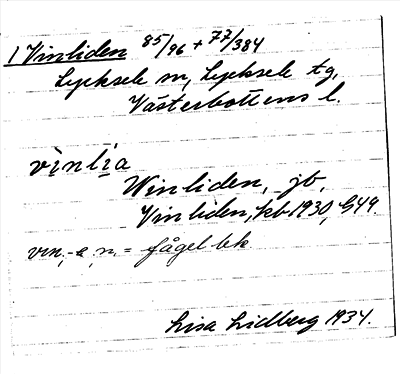 1 Vinliden 85/96 + 77/384
Lycksele sn, Lycksele tg,
Västerbottens l.
vinlia
Winliden, jb,
Vinliden, kb 1930, G49.
vin, -e, n, = fågellek
Lisa Lidberg 1934.